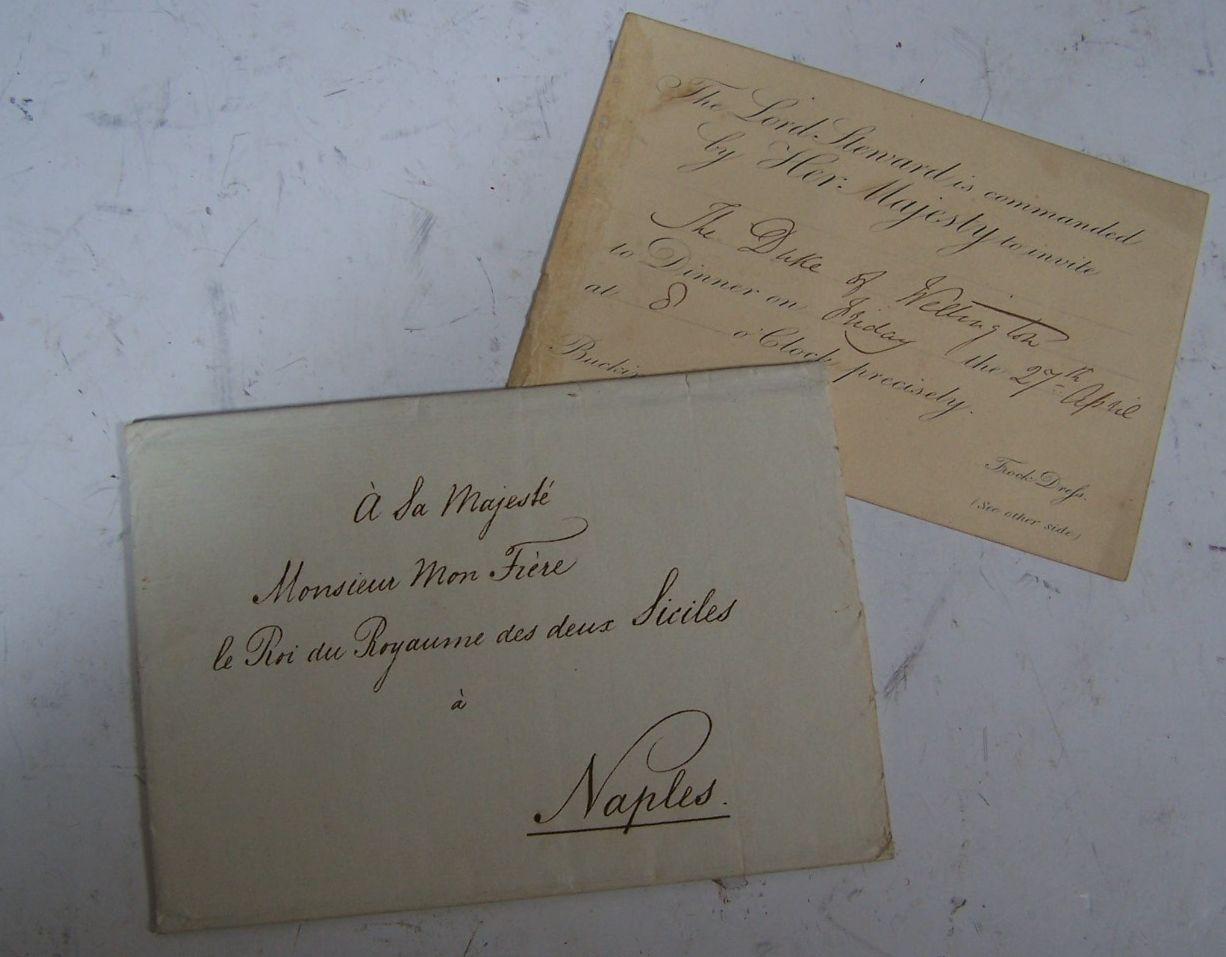 The Lord Steward is commanded
by Her Majesty to invite
The Duke of Wellington
to Dinner on Friday the 27th April
at 8 o'Clock precisely.
Frock Dress.
(See other side)
À Sa Majesté
Monsieur Mon Frère
le Roi du Royaume des deux Siciles
à
Naples.